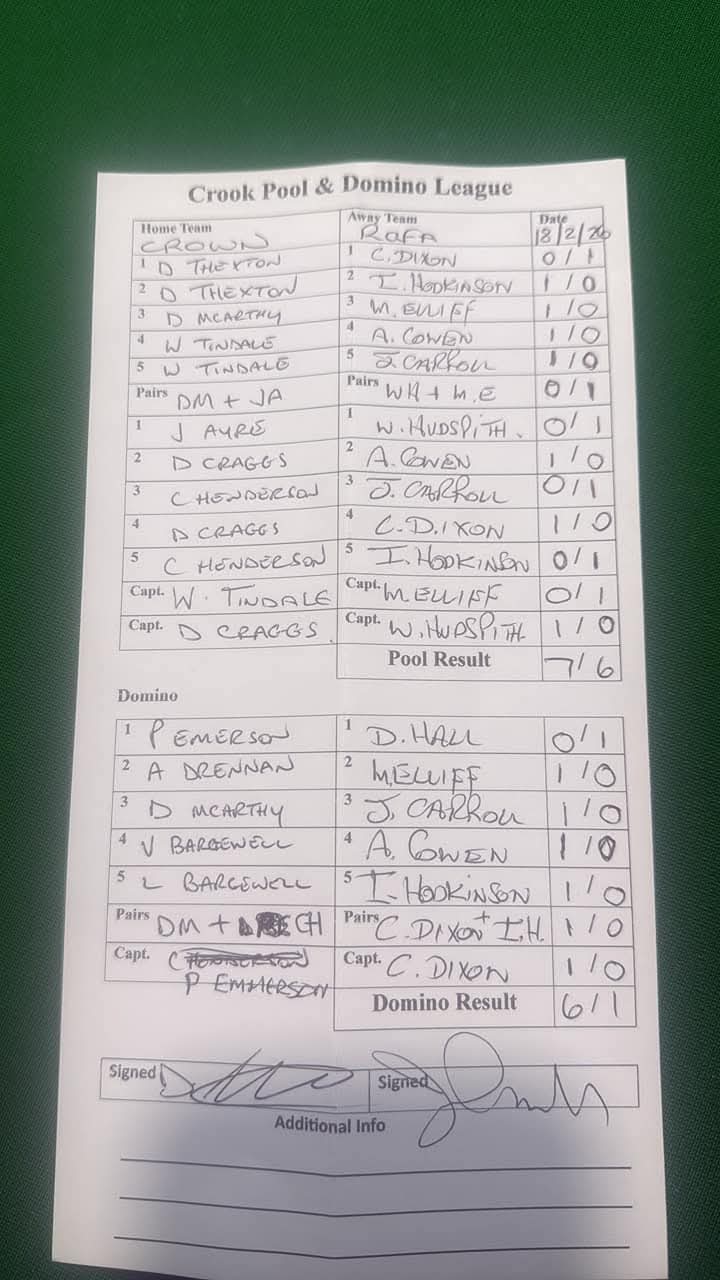 Crook Pool & Domino League
Home Team Away Team Date
CROWN RAFA 18/2/26
1 D THEXTON 1 C. DIXON 0/1
2 D THEXTON 2 I. HODKINSON 1/0
3 D MCARTHY 3 M. ELLIFF 1/0
4 W TINDALE 4 A. COWEN 1/0
5 W TINDALE 5 J CARROLL 1/0
Pairs DM + JA Pairs WH + M.E 0/1
1 J AYRE 1 W. HUDSPITH. 0/1
2 D CRAGGS 2 A. COWEN 1/0
3 C HENDERSON 3 J. CARROLL 0/1
4 D CRAGGS 4 C. DIXON 1/0
5 C HENDERSON 5 I. HODKINSON 0/1
Capt. W. TINDALE Capt. M ELLIFF 0/1
Capt. D CRAGGS. Capt. W. HUDSPITH. 1/0
Pool Result 7/6
Domino
1 P EMERSON 1 D. HALL 0/1
2 A DRENNAN 2 M. ELLIFF 1/0
3 D MCARTHY 3 J. CARROLL 1/0
4 V BARGEWELL 4 A. COWEN 1/0
5 L BARGEWELL 5 I. HODKINSON 1/0
Pairs DM + CH Pairs C. DIXON + I.H. 1/0
Capt. C HENDERSON Capt. C. DIXON 1/0
P EMMERSON
Domino Result 6/1
Signed Signed
Additional Info